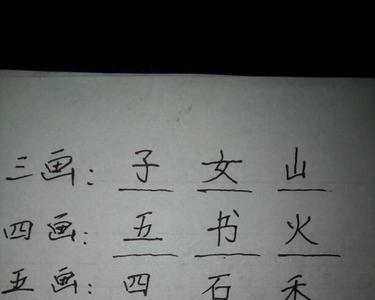 三画：子 女 山
四画：五 书 火
五画：四 石 禾